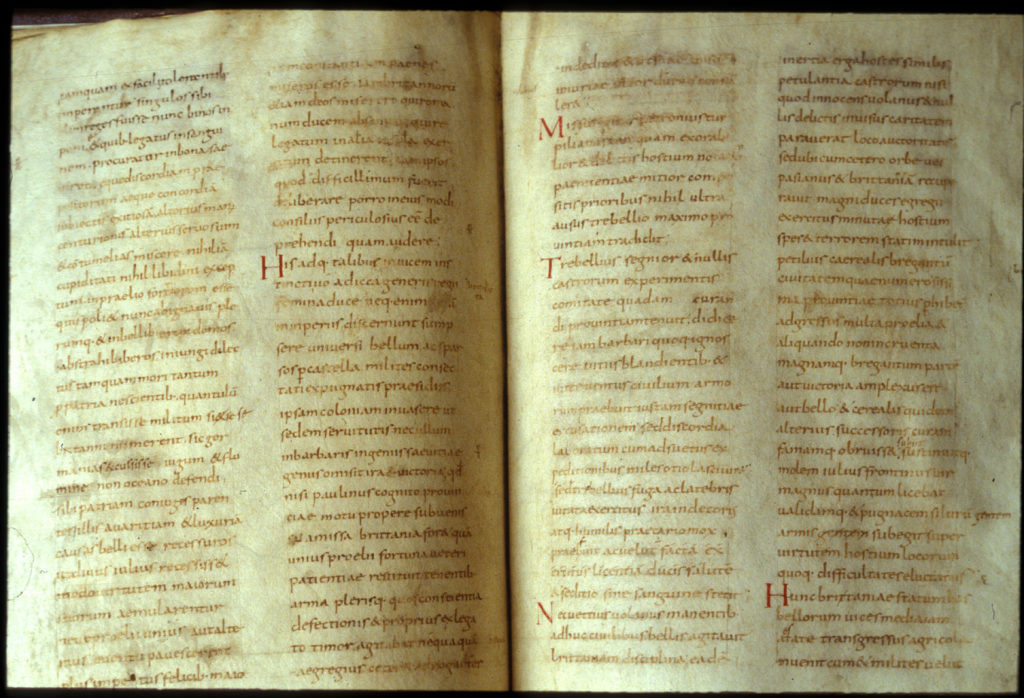 tamquam ex facili tolerantib
imperantur singulos sibi
reges fuisse nunc binos in
poni & quib legatus in sangui
nem procurator in bona sae
uiret aeque discordiam prae
positorum aeque concordiã
subiectis exitiosã alterius manꝰ
centuriones alterius seruos uim
& contumelias miscere nihil iã
cupiditati nihil libidini excep
tum in praelio fortiorem esse
qui spoli& nunc ab ignauis ple
rumq & inbellib eripi domos
abstrahi liberos iniungi dilec
tus tamquam mori tantum
p patria nescientib quantulũ
enim transisse militum si sese
brittanni numerent sic ger
manias excussisse iugum & flu
mine non oceano defendi
sibi patriam coniuges paren
tes illis auaritiam & luxuriã
causas belli esse recessuros
ut diuus iulius recessiss&
modo uirtutem maiorum
suorum aemularentur
neue proelii unius aut alte
rius euentu pauescerent
plus impetus felicib maio
constantiam pen miseros
miseros esse iam britannorũ
etiam deos misereri qui roma
num ducem absentem qui re
legatum in alia insula exer
citum detinerent iam ipsos
quod difficillimum fuerit
deliberare porro in eius modi
consiliis periculosius eẽ de
prehendi quam audere
His adq. talibus inuicem ins
tincti uoadicca generis regii
femina duce neq enim sexũ
in imperiis discernunt sump
sere uniuersi bellum ac spar
sos p castella milites consec
tati expugnatis praesidiis
ipsam coloniam inuasere ut
sedem seruitutis nec ullum
in barbaris ingeniis saeuitiae
genus omisit ira & uictoria qđ
nisi paulinus cognito prouin
ciae motu propere subuenis
s& amissa brittania for& quã
unius proelii fortuna ueteri
patientiae restituit tenentib
arma plerisq quos conscientia
defectionis & proprius ex lega
to timor agitabat ne quaquã
egregius
in deditos & ut suae
iniuriae ultor durius consu
ler&
Missus igitur petronius tur
pilianus tamquam exorabi
lior & delictis hostium nouus
paenitentiae mitior compo
sitis prioribus nihil ultra
ausus trebellio maximo pro
uintiam tradidit
Trebellius segnior & nullis
castrorum experimentis
comitate quadam curan
di prouintiam tenuit didice
re iam barbari quoq ignos
cere uitiis blandientib &
interuentus ciuilium armo
rum praebuit iustam segnitiae
excusationem sed discordia
laboratum cum adsuetus ex
peditionibus miles otio lasciuir&
trebellius fuga ac latebris
uitata exercitus ira indecoris
atq humilis praecario mox
praefuit ac uelut pacta ex
ercitus licentia ducis salute
& seditio sine sanguine stetit
Nec uettius uolanus manentib
adhuc ciuilibus bellis agitauit
brittaniam disciplina eadẽ
inertia erga hostes similis
petulantia castrorum nisi
quod innocens uolanus & nul
lis delictis inuisus caritatem
parauerat loco auctoritatis
sed ubi cum cetero orbe ues
pasianus & brittaniã recupe
rauit magni duces egregii
exercitus minuta hostium
spes & terrorem statim intulit
petilius caerealis brigantũ
ciuitatem quae numerosissi
ma prouintiae totius phibe
adgressus multa proelia &
aliquando non incruenta
magnamq brigantum parte
aut uictoria amplexus e
aut bello & cerealis quidem
alterius successoris curam
famamq obruiss& subiit sustinuitq
molem iulius frontinus uir
magnus quantum liceba&
ualidamq & pugnacem silurũ gentem
armis gentem subegit super
uirtutem hostium locorum
quoq difficultates eluctatus
Hunc brittaniae statum has
bellorum uices media iam
aestate transgressus agricola
inuenit cum & milites uelut